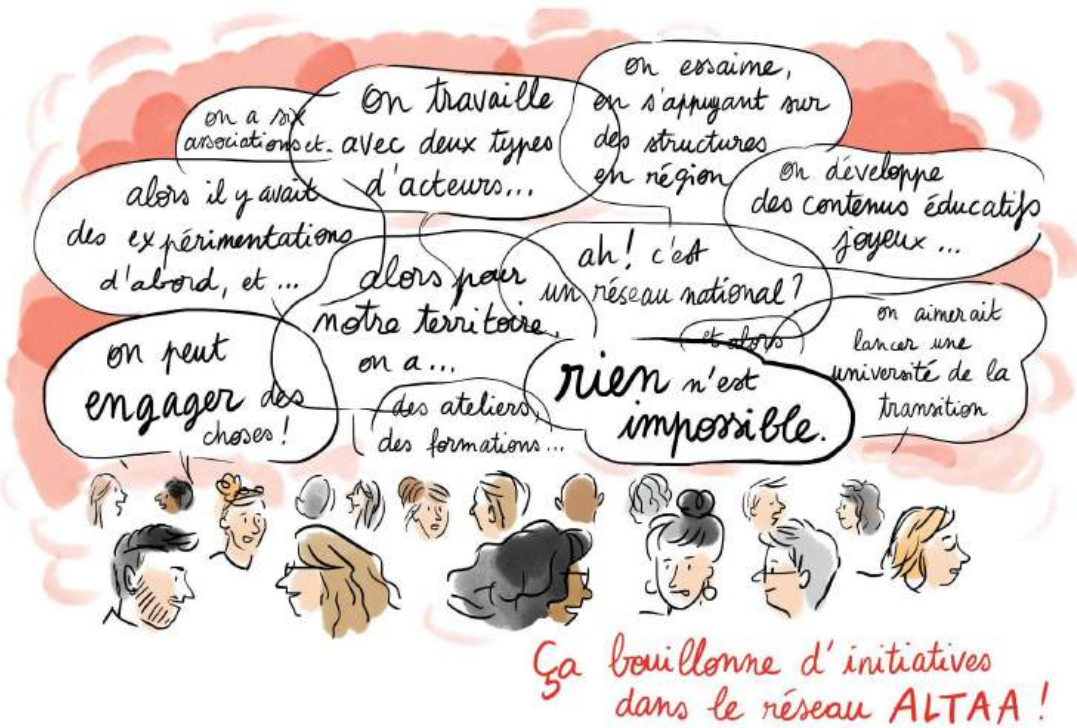 on a six
associations et..
on travaille
avec deux types
d'acteurs...
on essaime,
en s'appuyant sur
des structures
en région
alors il y avait
des expérimentations
d'abord, et ...
on développe
des contenus éducatifs
joyeux ...
alors pour
notre territoire,
on a ...
ah! c'est
un réseau national ?
et alors
on aimerait
lancer une
université de la
transition
on peut
engager des
choses !
des ateliers,
des formations ...
rien n'est
impossible.
Ça bouillonne d'initiatives
dans le réseau ALTAA !